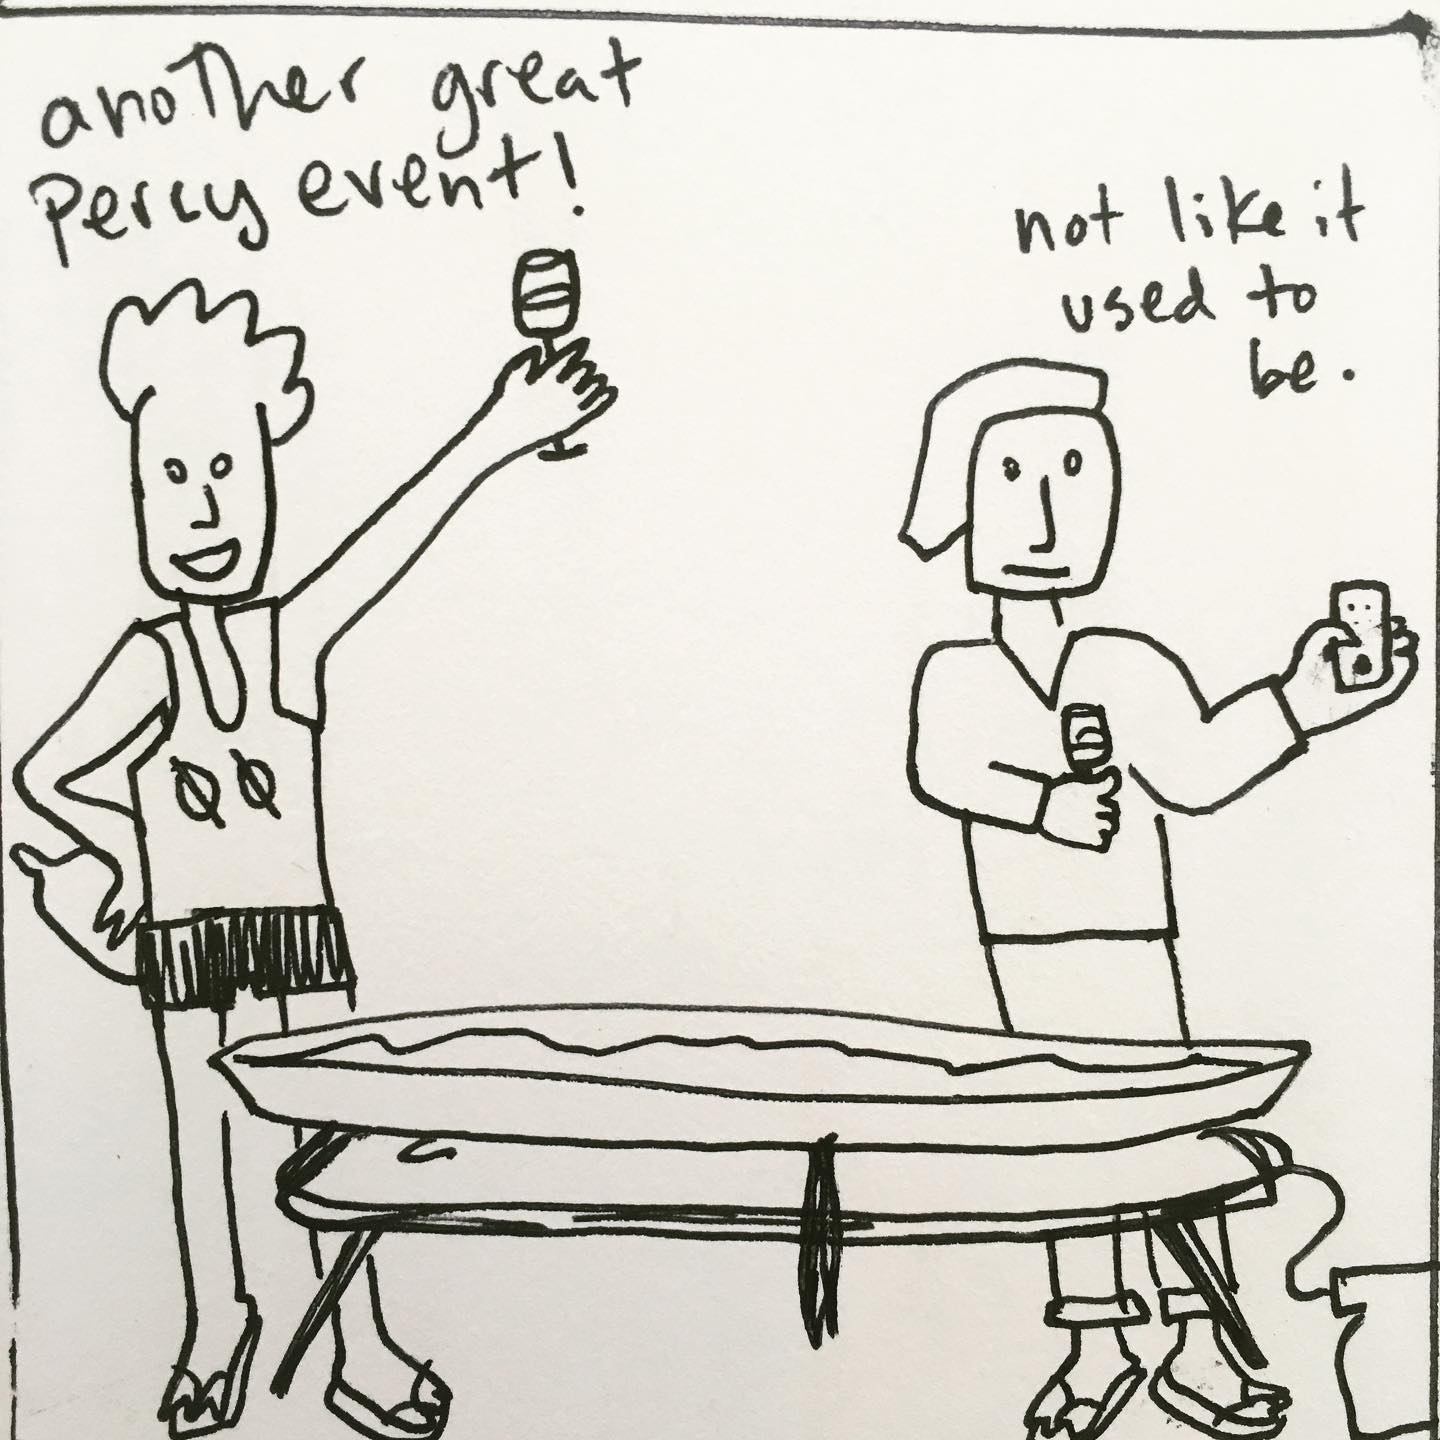 another great
Percy event!
not like it
used to
be.